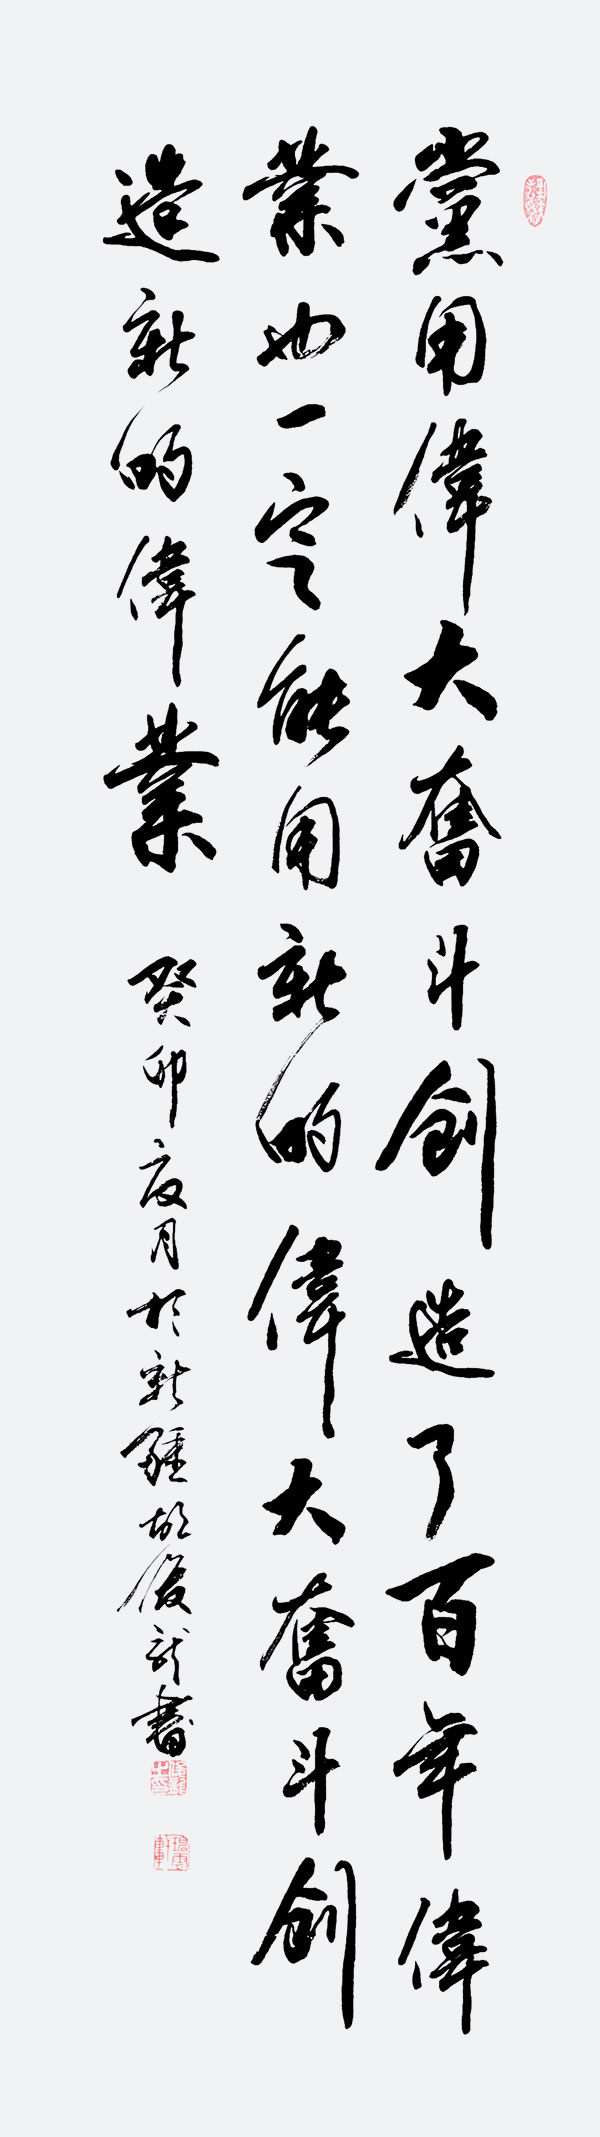 黨用偉大奮斗創造了百年偉
業也一定能用新的偉大奮斗創
造新的偉業
癸卯夏月於新疆胡俊龍書